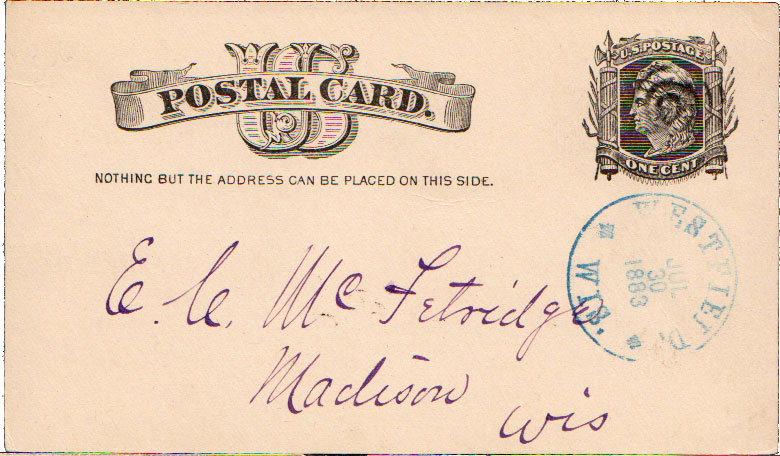 US
POSTAL CARD.
NOTHING BUT THE ADDRESS CAN BE PLACED ON THIS SIDE.
U.S. POSTAGE
ONE CENT
WESTFIELD, WIS.
JUL
30
1883
E. C. McFetridge
Madison
Wis